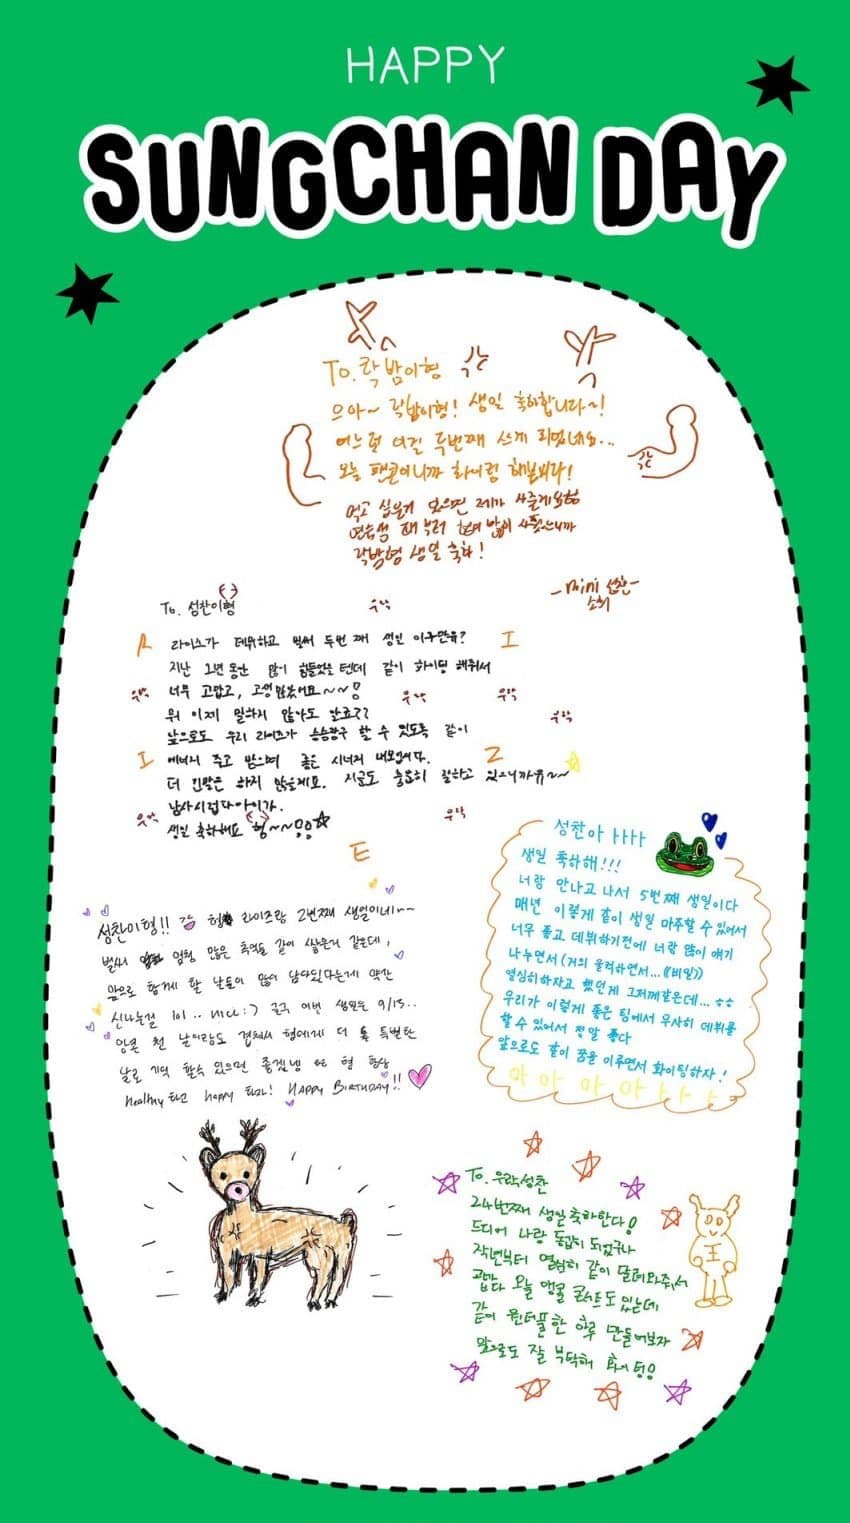 HAPPY
SUNGCHAN DAY
To. 락밤이형
으아~ 락밤이형! 생일 축하합니다~!
어느덧 이걸 두번째 쓰게 되었네요...
오늘 팬콘이니까 화이팅 해봅시다!
먹고 싶은거 있으면 제가 사줄게요형
연습생 때 부터 형이 많이 사줬으니까
락밤형 생일 축하!
-mini 성찬-
소희
To. 성찬이형
우락
R 라이즈가 데뷔하고 벌써 두번 째 생일 이구만유? I
지난 1년 동안 많이 힘들었을 텐데 같이 화이팅 해줘서
우락 너무 고맙고, 고생 많았어요~~!
우락 우락
뭐 이제 말하지 않아도 알죠??
우락
앞으로도 우리 라이즈가 승승장구 할 수 있도록 같이
I 에너지 주고 받으며 좋은 시너지 내봅시다. Z
더 긴말은 하지 않을게요. 지금도 충분히 잘하고 있으니까유~~
남사시럽다아이가.
우락 우락
생일 축하해요 형~~!!
E
성찬아 ㅏㅏㅏㅏ
생일 축하해!!!
너랑 만나고 나서 5번째 생일이다
매년 이렇게 같이 생일 마주할 수 있어서
너무 좋고 데뷔하기전에 너랑 많이 얘기
나누면서(거의 울려하면서...((비밀))
열심히하자고 했던게 그저께같은데... ㅎㅎ
우리가 이렇게 좋은 팀에서 무사히 데뷔를
할 수 있어서 정말 좋다
앞으로도 같이 꿈을 이루면서 화이팅하자!
아 아 아 아 ㅏ ㅏ ㅏ
성찬이형!! 형 라이즈랑 2번째 생일이네~~
벌써 엄청 많은 추억을 같이 쌓은거 같은데,
앞으로 함께 할 날들이 많이 남아있다는게 약간
신나는걸 lol.. nice:) 결국 이번 생일은 9/13..
앙콘 첫 날이랑도 겹쳐서 형에게 더 특별한
날로 기억 할수 있으면 좋겠넹 형 항상
healthy 하고 happy 하자! HAPPY BIRTHDAY!!
To. 우락성찬
24번째 생일축하한다!
드디어 나랑 동갑이 되었구나
작년부터 열심히 같이 달려와줘서
고맙다 오늘 앵콜 콘서트도 있는데
같이 원더풀한 하루 만들어보자
앞으로도 잘 부탁해 화이팅!
王